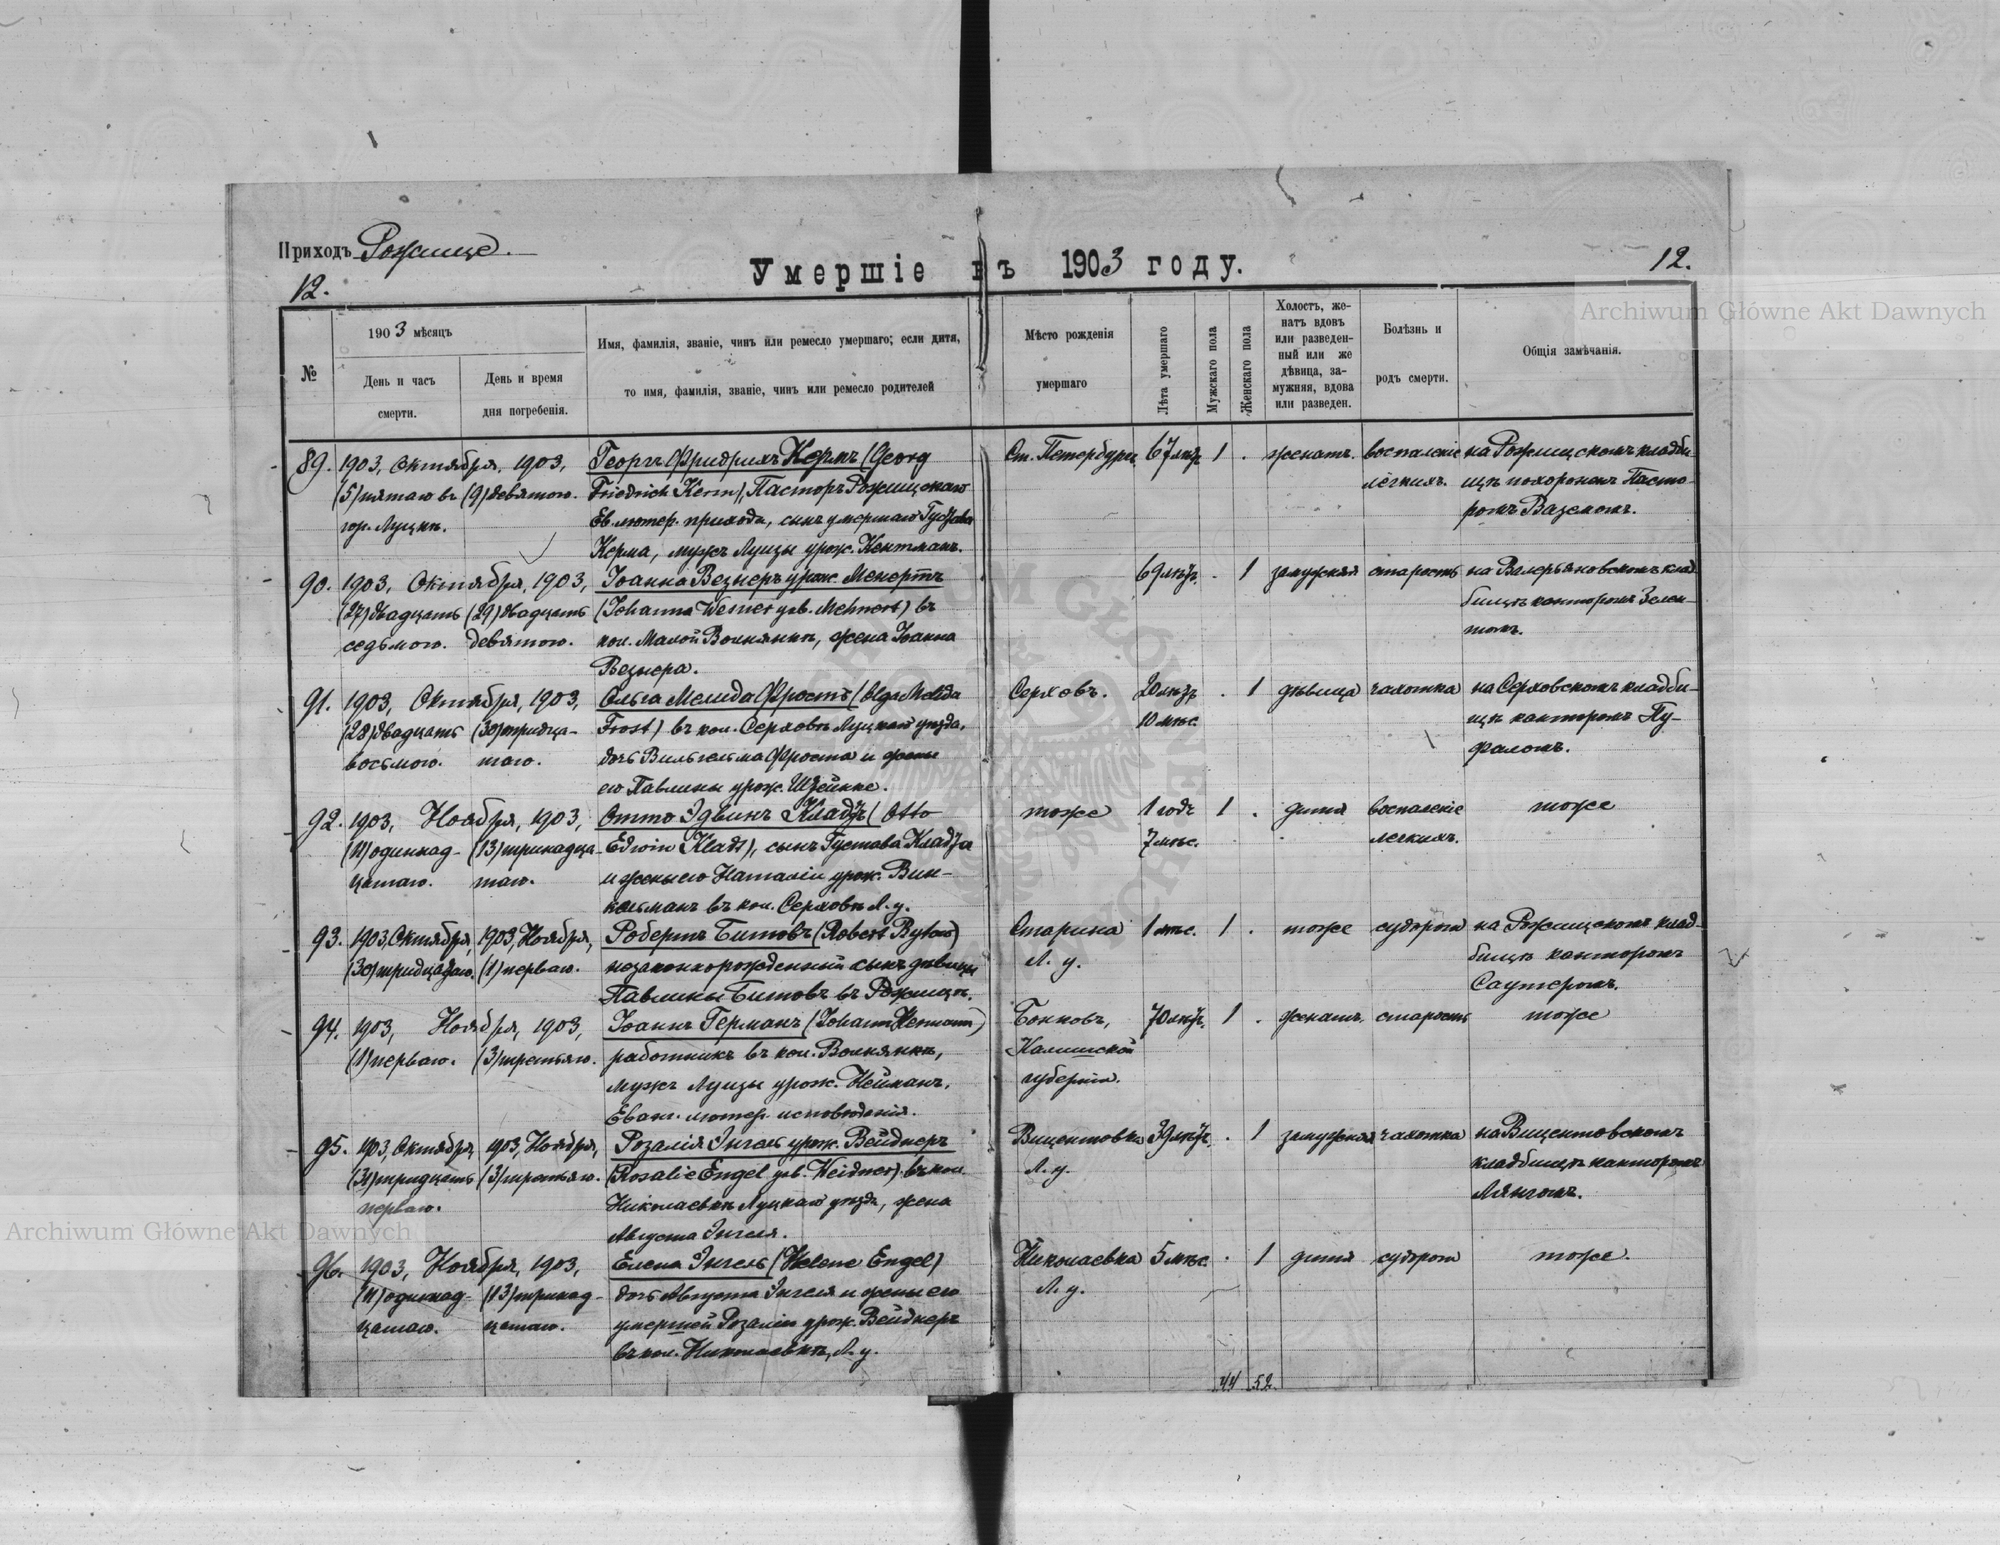 Приходъ Рожище.
Умершіе въ 1903 году.
12.
12.
Archiwum Główne Akt Dawnych
№
1903 мѣсяцъ
День и часъ
смерти.
День и время
дня погребенія.
Имя, фамилія, званіе, чинъ или ремесло умершаго; если дитя,
то имя, фамилія, званіе, чинъ или ремесло родителей
Мѣсто рожденія
умершаго
Лѣта умершаго
Мужскаго пола
Женскаго пола
Холостъ, же-
натъ вдовъ
или разведен-
ный или же
дѣвица, за-
мужняя, вдова
или разведен.
Болѣзнь и
родъ смерти.
Общія замѣчанія.
89. 1903, Октября, 1903, Георгъ Фридрихъ Кермъ (Georg Ст. Петербургъ 67 лѣтъ 1 . женатъ. воспаленіе на Рожищскомъ кладби-
(5) пятаго въ (9) девятого. Friedrich Kerm), Пасторъ Рожищскаго лёгкихъ. щѣ похороненъ Пасто-
гор. Луцкѣ. Ев. лютер. прихода, сынъ умершаго Густава ромъ Ваземомъ.
Керма, мужъ Луизы урож. Кентманъ.
90. 1903, Октября, 1903, Іоанна Везнеръ урож. Менертъ 69 лѣтъ. . 1 замужняя старость на Валерьяновскомъ клад-
(27) двадцать (29) двадцать (Johanna Wesner geb. Mehnert) въ бищѣ канторомъ Зелен-
седьмого. девятого. кол. Малой Волнянкѣ, жена Іоанна
Везнера.
91. 1903, Октября, 1903, Ольга Мелида Фростъ (Olga Melida Серховъ. 20 лѣтъ . 1 дѣвица чахотка на Серховскомъ кладби-
(28) двадцать (30) тридца- Frost) въ кол. Серховъ Луцкаго уѣзда, 10 мѣс. щѣ канторомъ Пу-
восьмого. таго. дочь Вильгельма Фроста и жены фаломъ.
его Павлины урож. Штейнке.
92. 1903, Ноября, 1903, Отто Эдвинъ Кладтъ (Otto тоже 1 годъ 1 . дитя воспаленіе тоже
(11) одиннад- (13) тринадца- Edwin Kladt), сынъ Густава Кладта 7 мѣс. легкихъ.
цатаго. таго. и жены его Наталіи урож. Вин-
кельманъ въ кол. Серховъ Л. у.
93. 1903, Октября, 1903, Ноября, Робертъ Битовъ (Robert Bytow) Старина 1 мѣс. 1 . тоже судорога на Рожищскомъ клад-
(30) тридцатаго. (1) перваго. незаконнорожденный сынъ дѣвицы Л. у. бищѣ канторомъ
Павлины Битовъ въ Рожищѣ. Саутеромъ.
94. 1903, Ноября, 1903, Іоаннъ Германъ (Johann Hermann) 70 лѣтъ. 1 . женатъ. старость тоже
(1) перваго. (3) третьяго. работникъ въ кол. Волнянкѣ, Калишской
мужъ Луизы урож. Нейманъ, губерніи.
Еванг. лютер. исповѣданія.
95. 1903, Октября, 1903, Ноября, Розалія Энгель урож. Вейднеръ Вицентовка 39 лѣтъ. . 1 замужняя чахотка на Вицентовскомъ
(31) тридцать (3) третьяго. (Rosalie Engel geb. Weidner) въ кол. Л. у. кладбищѣ канторомъ
перваго. Николаевкѣ Луцкаго уѣзда, жена Лянгомъ.
Августа Энгеля.
Archiwum Główne Akt Dawnych
96. 1903, Ноября, 1903, Елена Энгель (Helene Engel) Николаевка 5 мѣс. . 1 дитя судорога тоже.
(11) одиннад- (13) тринад- дочь Августа Энгеля и жены его Л. у.
цатаго. цатаго. умершей Розаліи урож. Вейднеръ
въ кол. Николаевкѣ, Л. у.
44 52